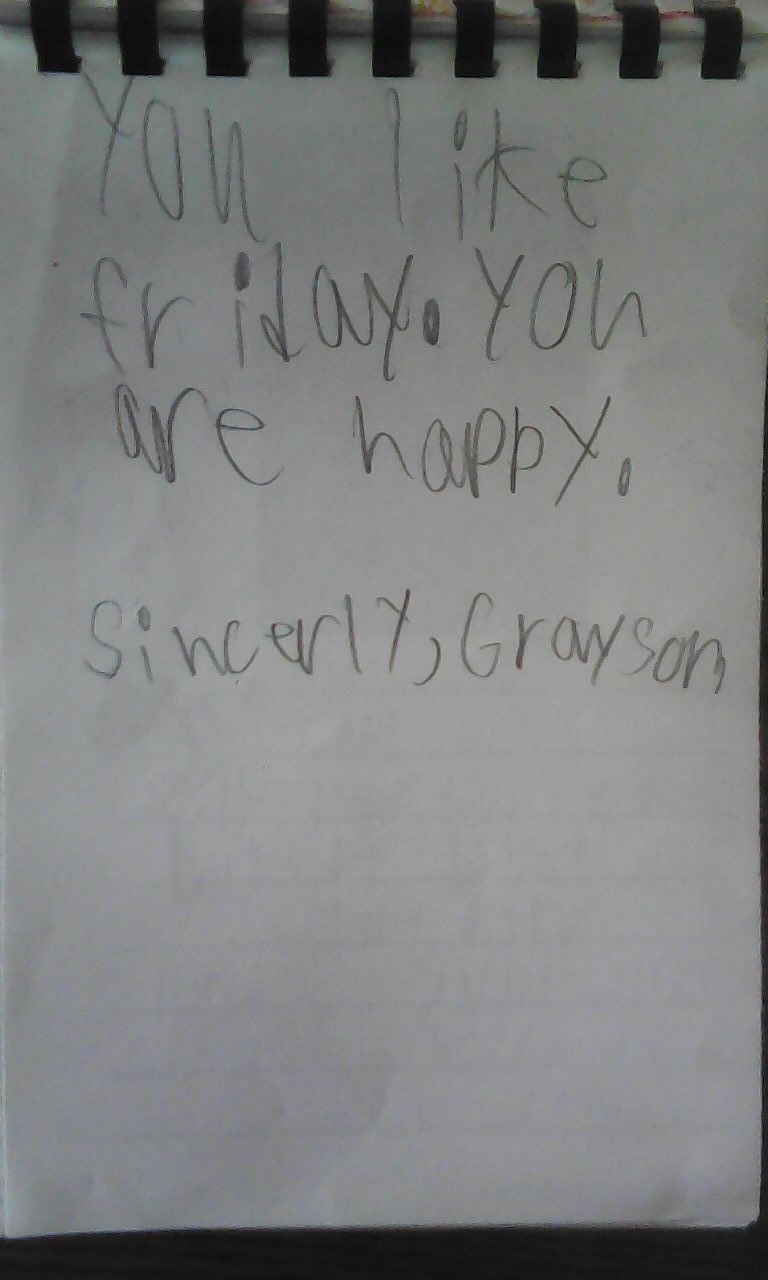 You like
friday. You
are happy.
Sincerly, Grayson